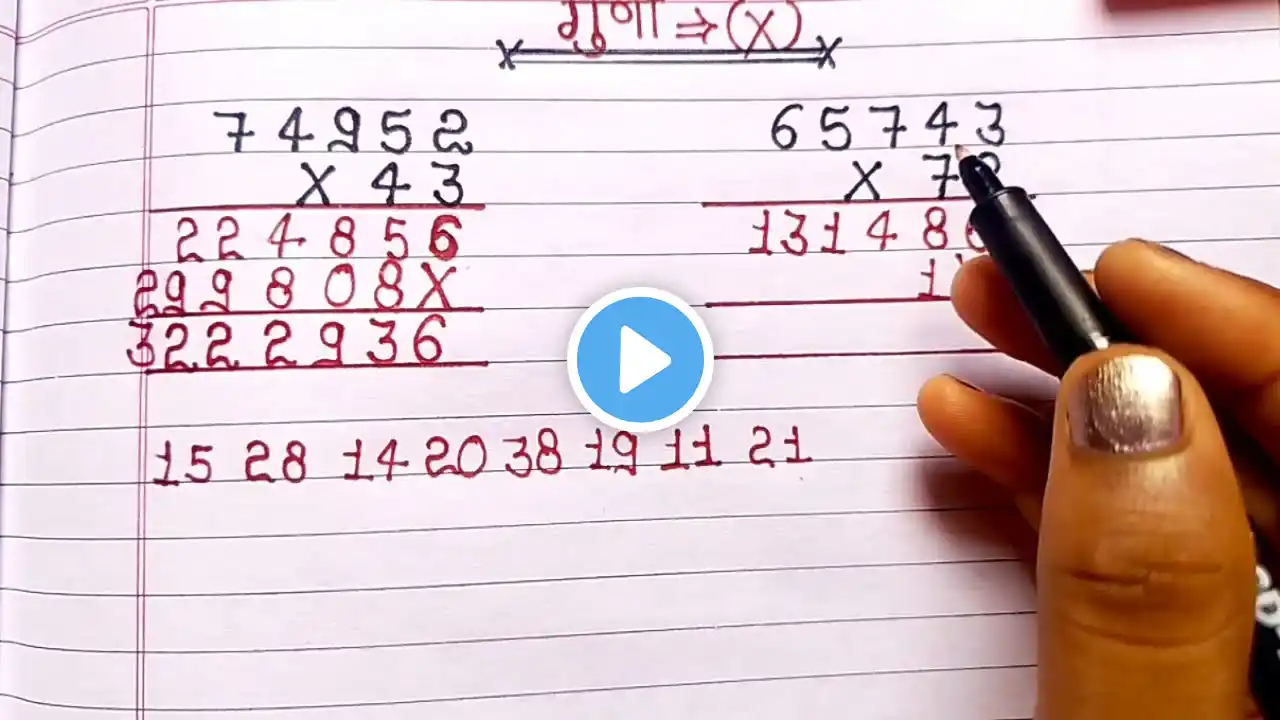 गुणा ⇒ (X)
74952
X 43
224856
299808X
3222936
65743
X 7
13148
1
15 28 14 20 38 19 11 21